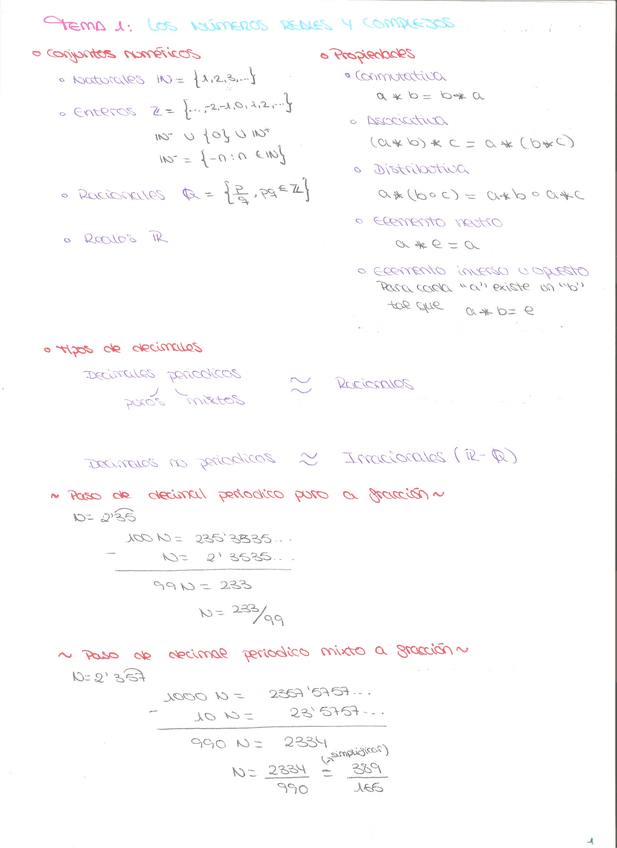 TEMA 1: LOS NÚMEROS REALES Y COMPLEJOS
Conjuntos numéricos
Naturales ℕ = {1,2,3,...}
Enteros ℤ = {...,-2,-1,0,1,2,...}
ℕ⁻ ∪ {0} ∪ ℕ⁺
ℕ⁻ = {-n : n ∈ ℕ}
Racionales ℚ = {p/q , p,q ∈ ℤ}
Reales ℝ
Propiedades
Conmutativa
a * b = b * a
Asociativa
(a * b) * c = a * (b * c)
Distributiva
a * (b ∘ c) = a * b ∘ a * c
Elemento neutro
a * e = a
Elemento inverso u opuesto
Para cada "a" existe un "b"
tal que a * b = e
Tipos de decimales
Decimales periodicos ≈ Racionales
puros mixtos
Decimales no periodicos ≈ Irracionales (ℝ - ℚ)
~ Paso de decimal periodico puro a fracción ~
N = 2'35
100 N = 235'3535...
- N = 2'3535...
99 N = 233
N = 233/99
~ Paso de decimal periodico mixto a fracción ~
N = 2'357
1000 N = 2357'5757...
- 10 N = 23'5757...
990 N = 2334
N = 2334/990 = (simplificar) 389/165
1